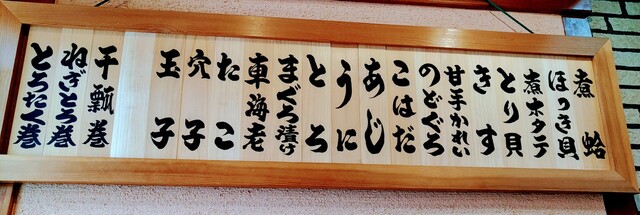 煮蛤
ほっき貝
煮ホタテ
とり貝
きす
甘手かれい
のどぐろ
こはだ
あじ
うに
とろ
まぐろ漬け
車海老
たこ
穴子
玉子
干瓢巻
ねぎとろ巻
とろたく巻